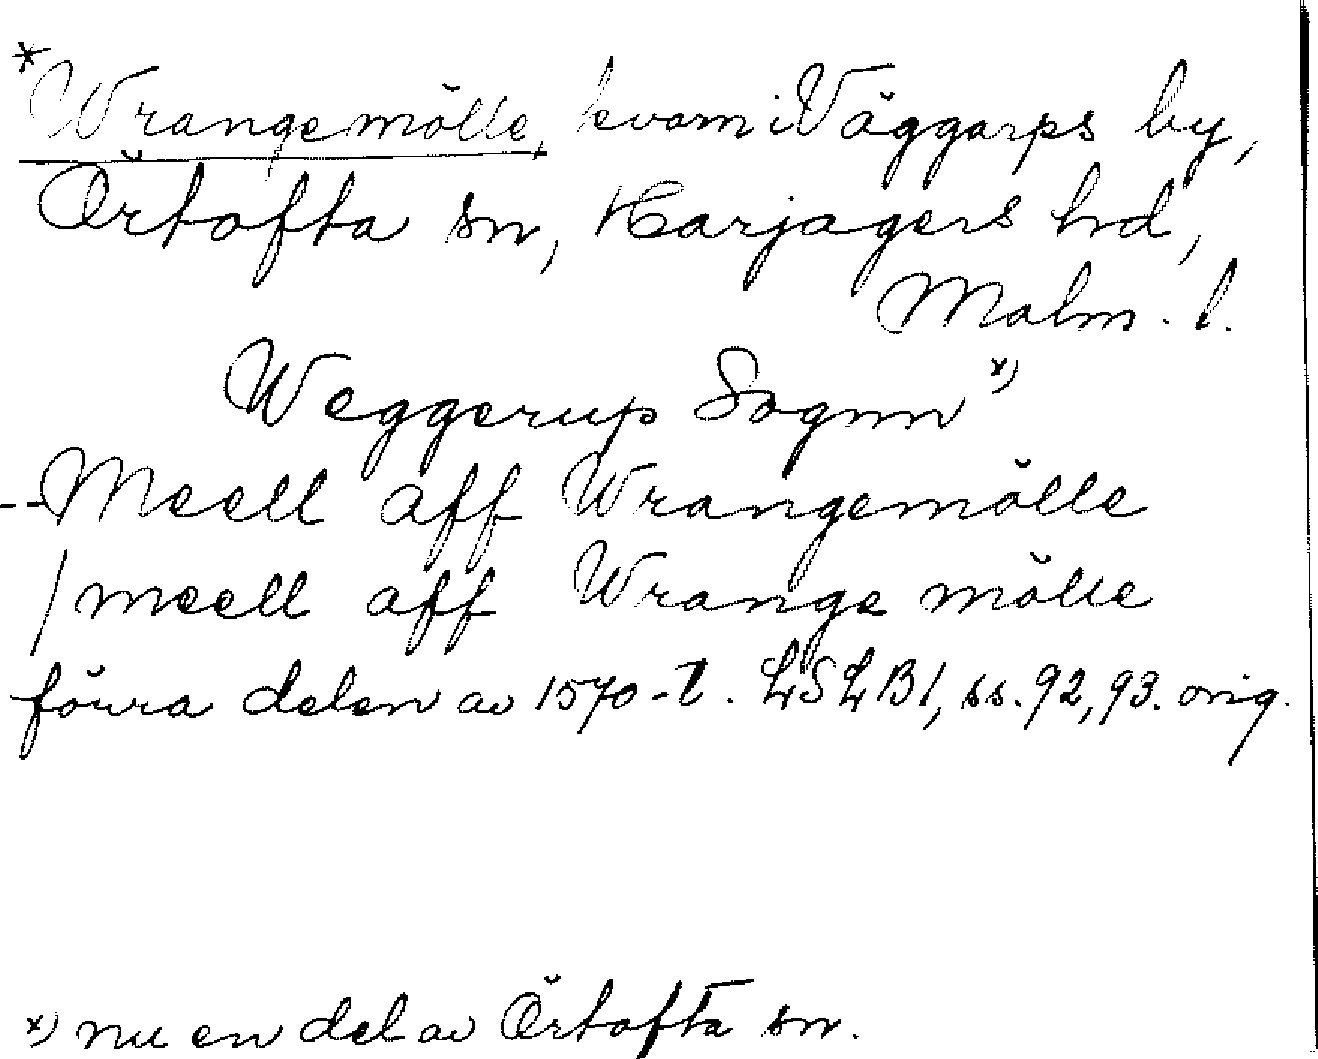 *Wrangemölle, kvarn i Väggarps by,
Örtofta sn, Harjagers hd,
Malm. l.
Weggerup Sognn x)
-- Meell aff Wrangemölle
/ meell aff Wrange mölle
förra delen av 1570-t. LSLB 1, ss. 92, 93. orig.
x) nu en del av Örtofta sn.